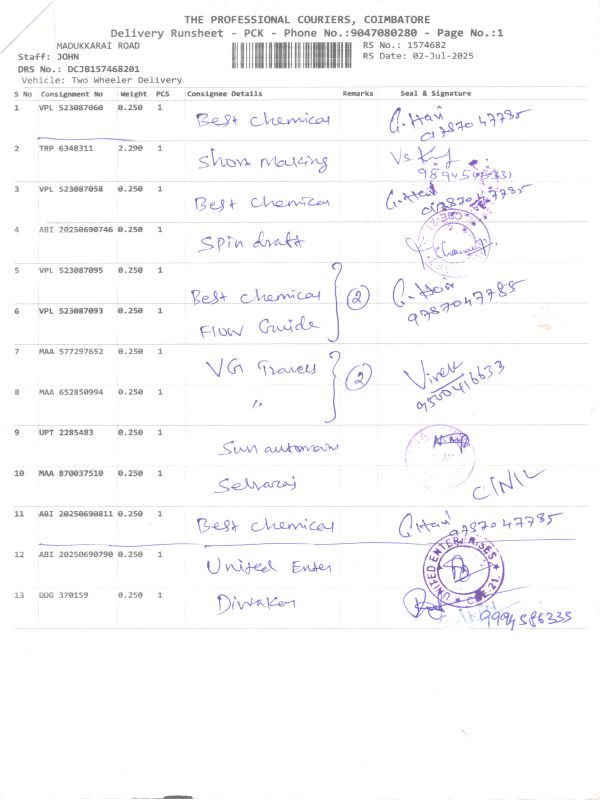 THE PROFESSIONAL COURIERS, COIMBATORE
Delivery Runsheet - PCK - Phone No.:9047080280 - Page No.:1
MADUKKARAI ROAD
RS No.: 1574682
Staff: JOHN
RS Date: 02-Jul-2025
DRS No.: DCJB157468201
Vehicle: Two Wheeler Delivery
S No Consignment No Weight PCS Consignee Details Remarks Seal & Signature
1 VPL 523087060 0.250 1 Best Chemical G. Hari 9787047785
2 TRP 6348311 2.290 1 Short Making Vs.
3 VPL 523087058 0.250 1 Best Chemical G. Hari 9787047785
4 ABI 20250690746 0.250 1 Spin draft
5 VPL 523087095 0.250 1 Best Chemical 2 G. Hari 9787047785
6 VPL 523087093 0.250 1 Flow Guide
7 MAA 577297652 0.250 1 VG Travels 2 Vivek 9500416633
8 MAA 652850994 0.250 1 "
9 UPT 2285483 0.250 1 Sun automain
10 MAA 870037510 0.250 1 Selvaraj CINIL
11 ABI 20250690811 0.250 1 Best Chemical G. Hari 9787047785
12 ABI 20250690790 0.250 1 United Enter UNITED ENTERPRISES CBE-21
13 DDG 370159 0.250 1 Diwakar 9994586333